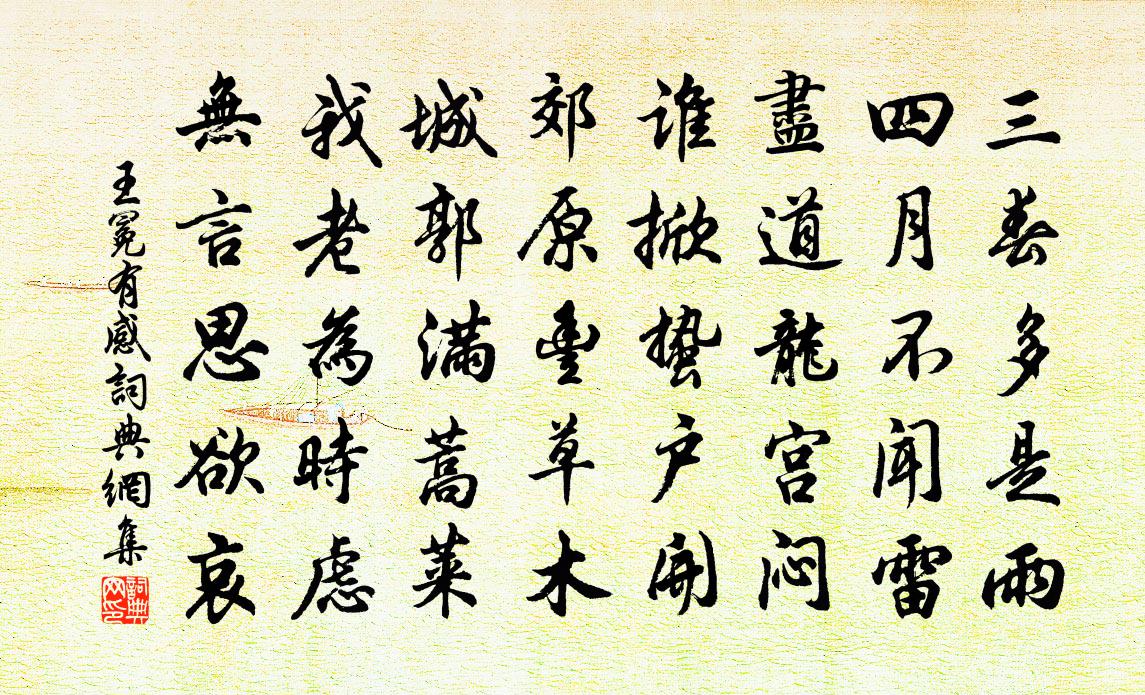 三春多是雨
四月不闻雷
盡道龍宫闷
谁掀蛰户開
郊原豐草木
城郭满蒿萊
我老為時慮
無言思欲哀
王冕有感詞典網集
詞典网印